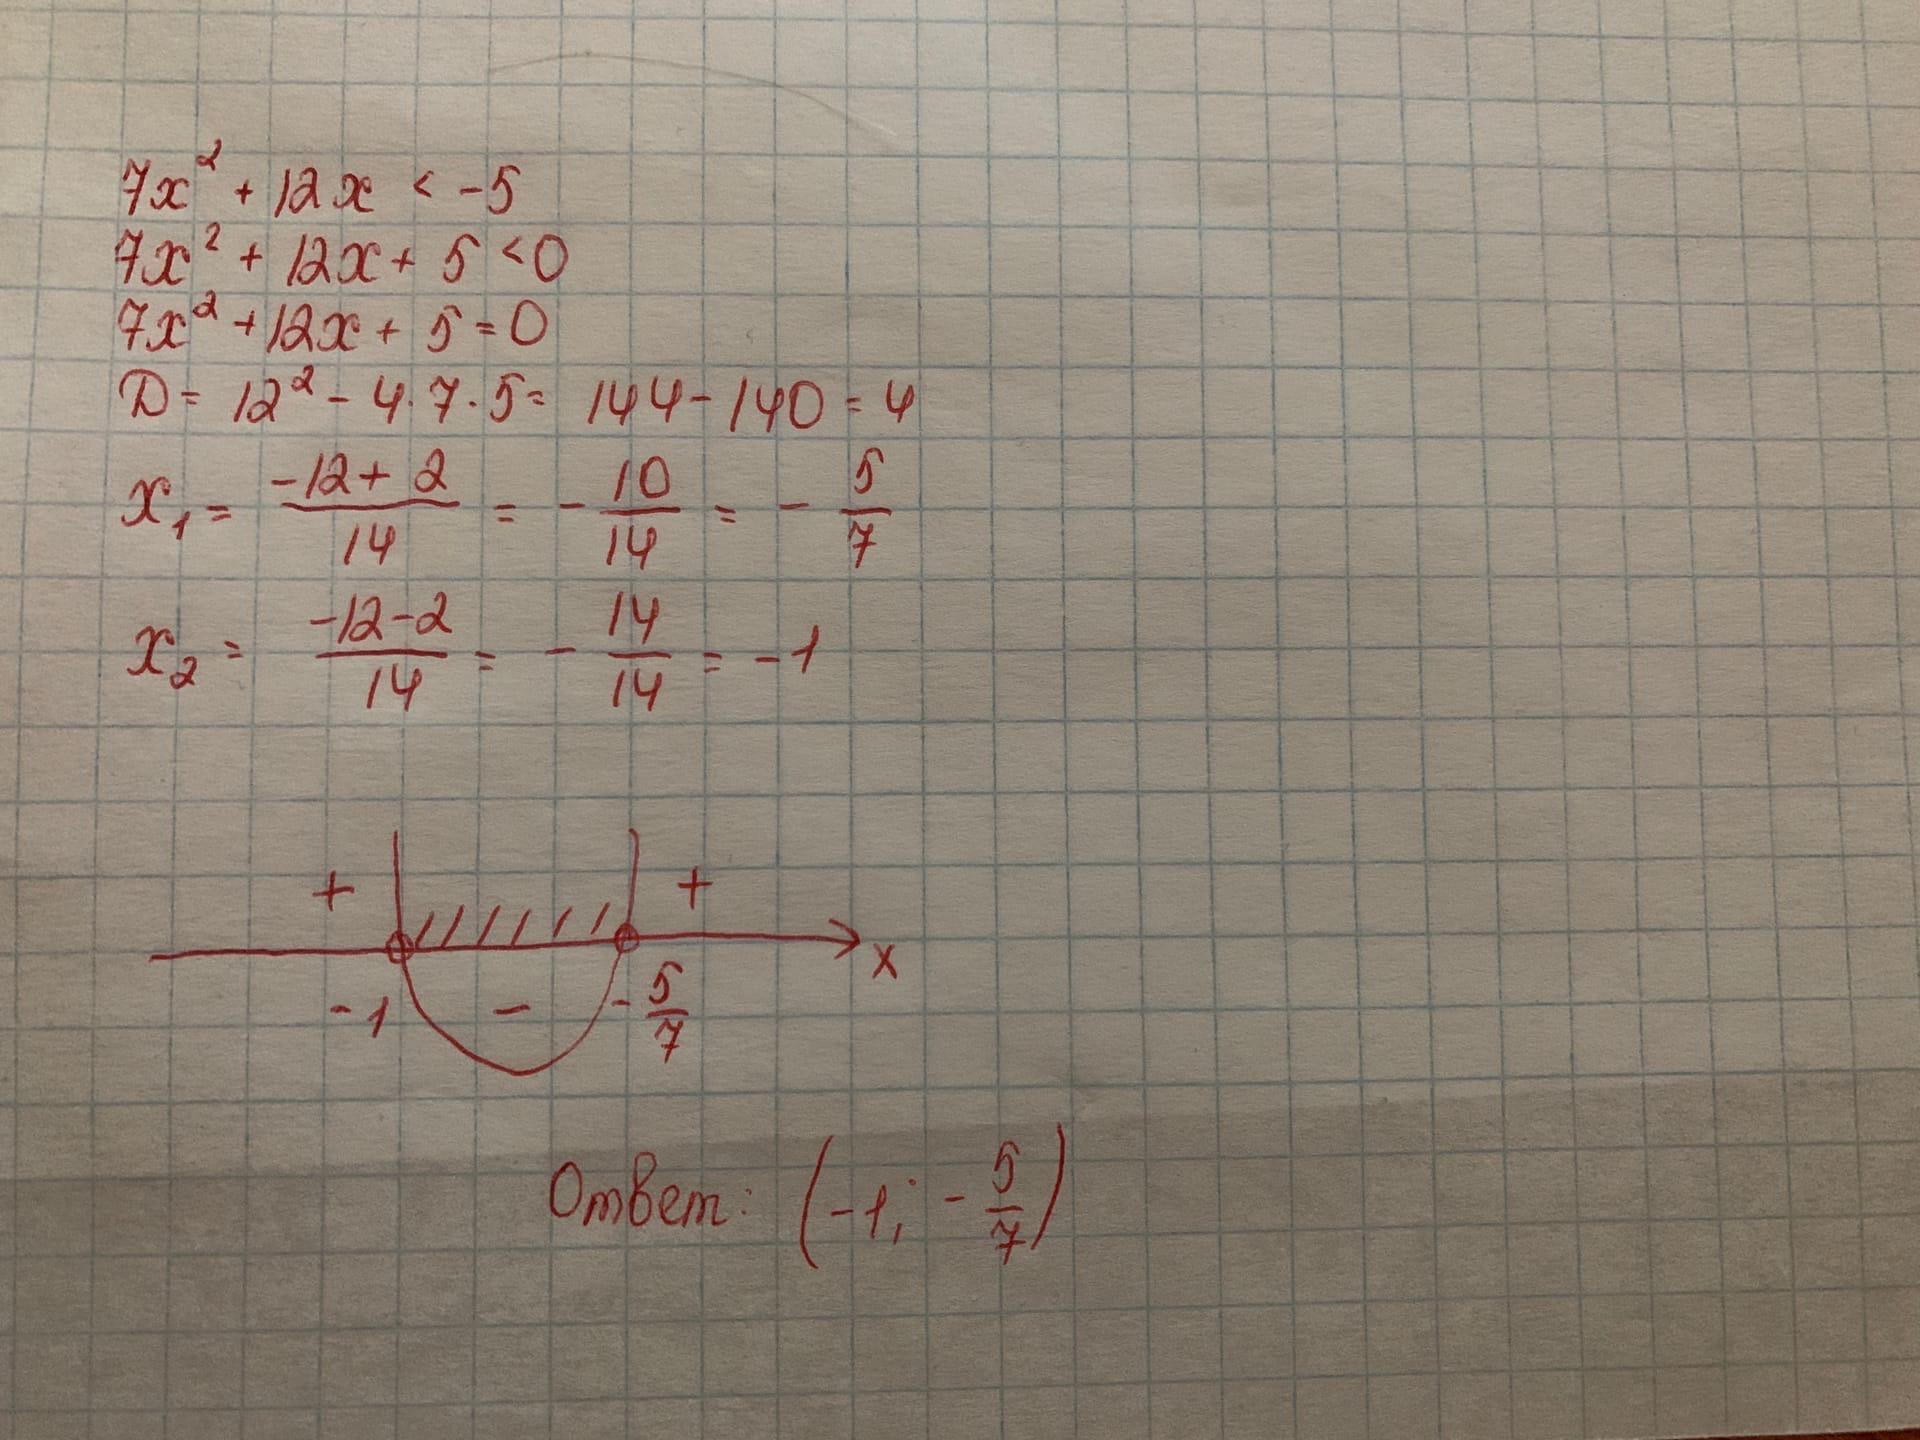 7x² + 12x < -5
7x² + 12x + 5 < 0
7x² + 12x + 5 = 0
D = 12² - 4·7·5 = 144 - 140 = 4
x₁ = (-12 + 2)/14 = - 10/14 = - 5/7
x₂ = (-12 - 2)/14 = - 14/14 = -1
+ +
x
-1 - - 5/7
Ответ: (-1; - 5/7)